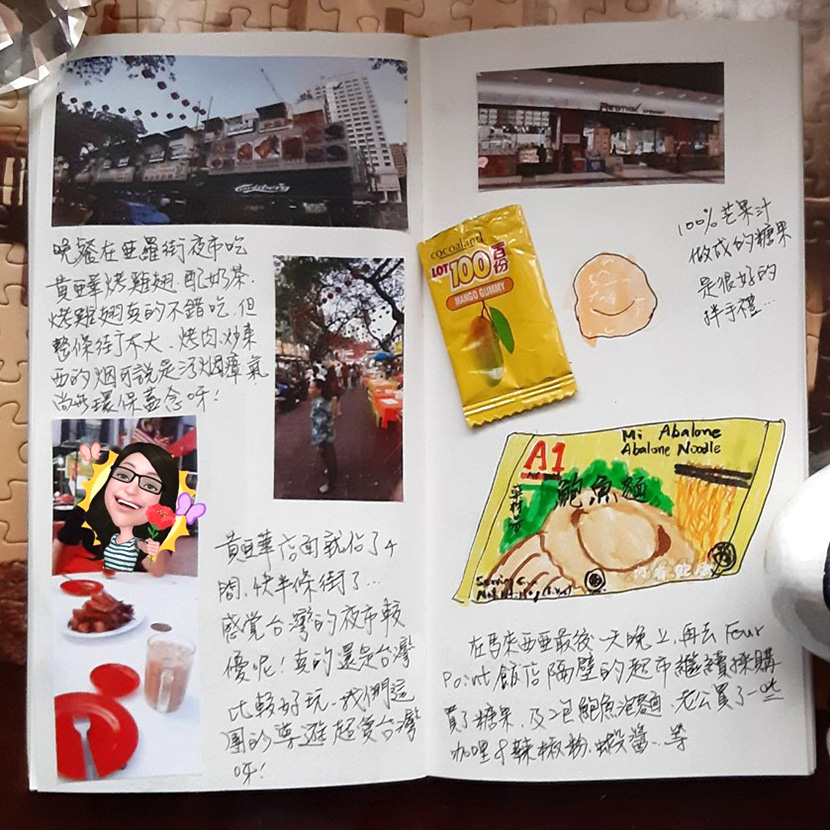 晚餐在亞羅街夜市吃
黃亞華烤雞翅.配奶茶.
烤雞翅真的不錯吃.但
整條街不大.烤肉.炒東
西的烟可說是污烟瘴氣
尚無環保蓋念呀!
黃亞華店面就佔了4
間.快半條街了...
感覺台灣的夜市較
優呢!真的還是台灣
比較好玩.我們這
團的導遊超愛台灣
呀!
100%芒果汁
做成的糖果
是很好的
拌手禮...
cocoaland
LOT 100 百份
MANGO GUMMY
A1
Mi Abalone
Abalone Noodle
鮑魚麵
在馬來西亞最後一天晚上.再去Four
Point飯店隔壁的超市繼續採購
買了糖果.及2包鮑魚泡麵.老公買了一些
咖哩&辣椒粉.蝦醬..等